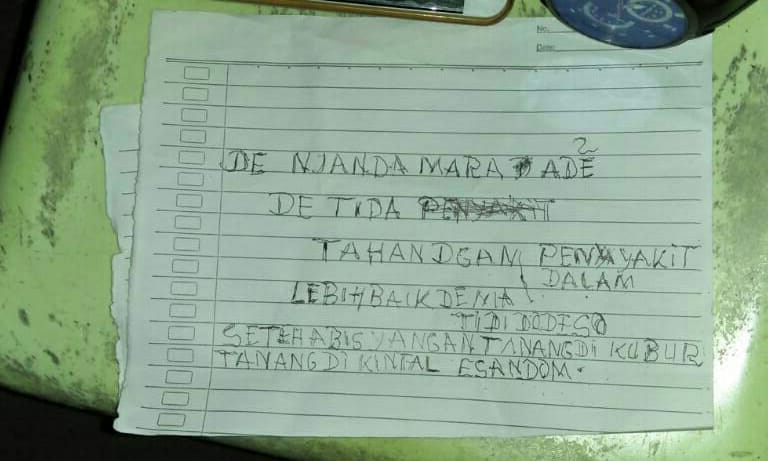 No.
Date:
DE NJANDA MARA ADE 2
DE TIDA
TAHAN DGAN PENYAYAKIT
DALAM
LEBIH BAIK DE MIA
TIDI DODESO
SETEH ABIS YANGAN TANANG Di KUBUR
TANANG Di KINTAL ESANDOM.